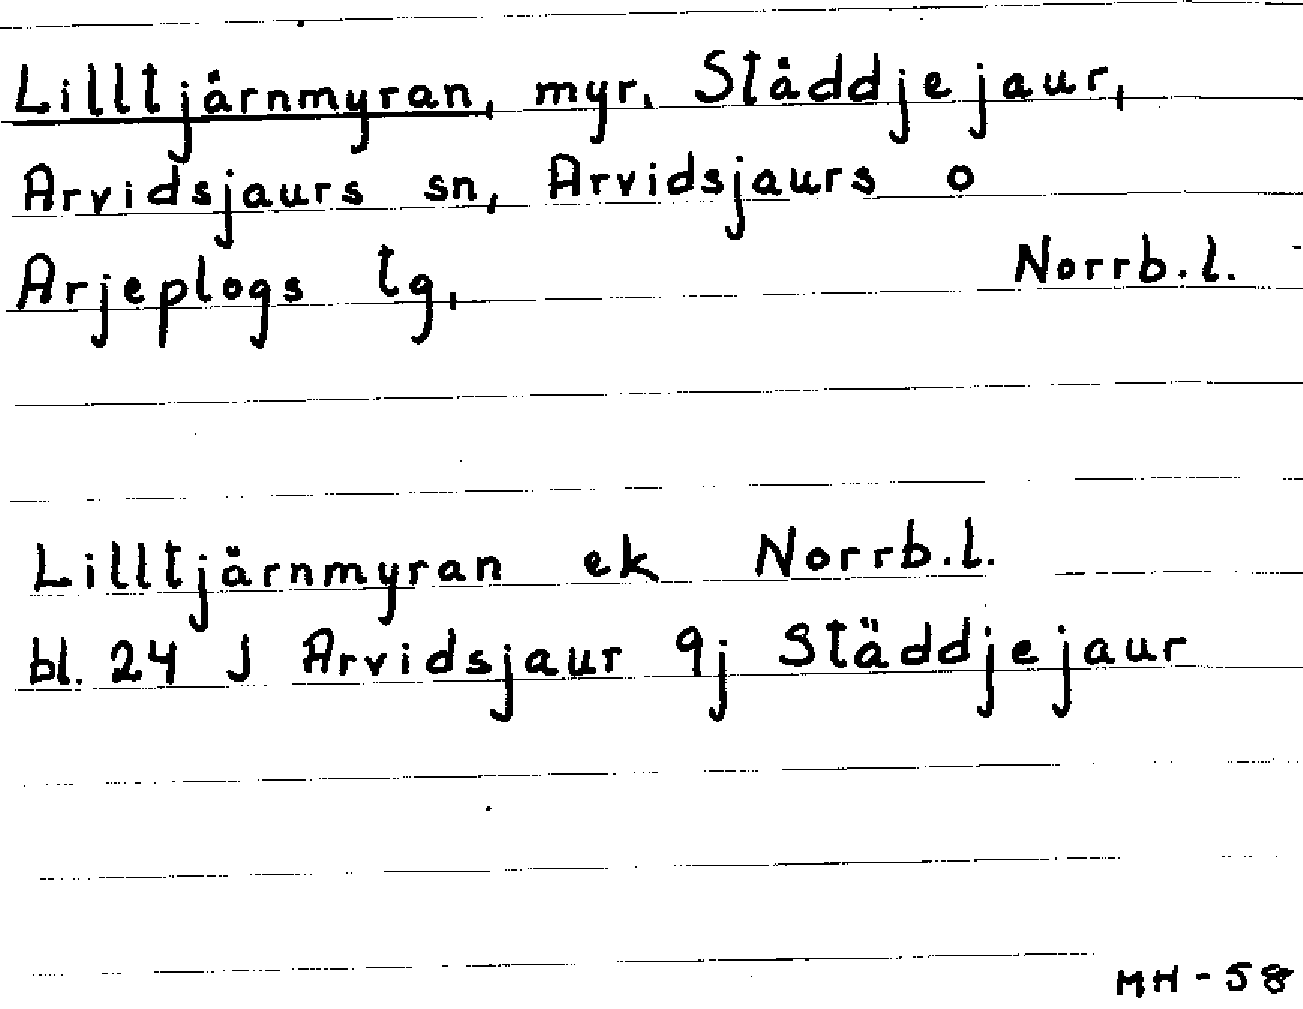 Lilltjärnmyran, myr, Städdjejaur,
Arvidsjaurs sn, Arvidsjaurs o
Arjeplogs tg, Norrb.l.
Lilltjärnmyran ek Norrb.l.
bl. 24 J Arvidsjaur 9j Städdjejaur
MH-58